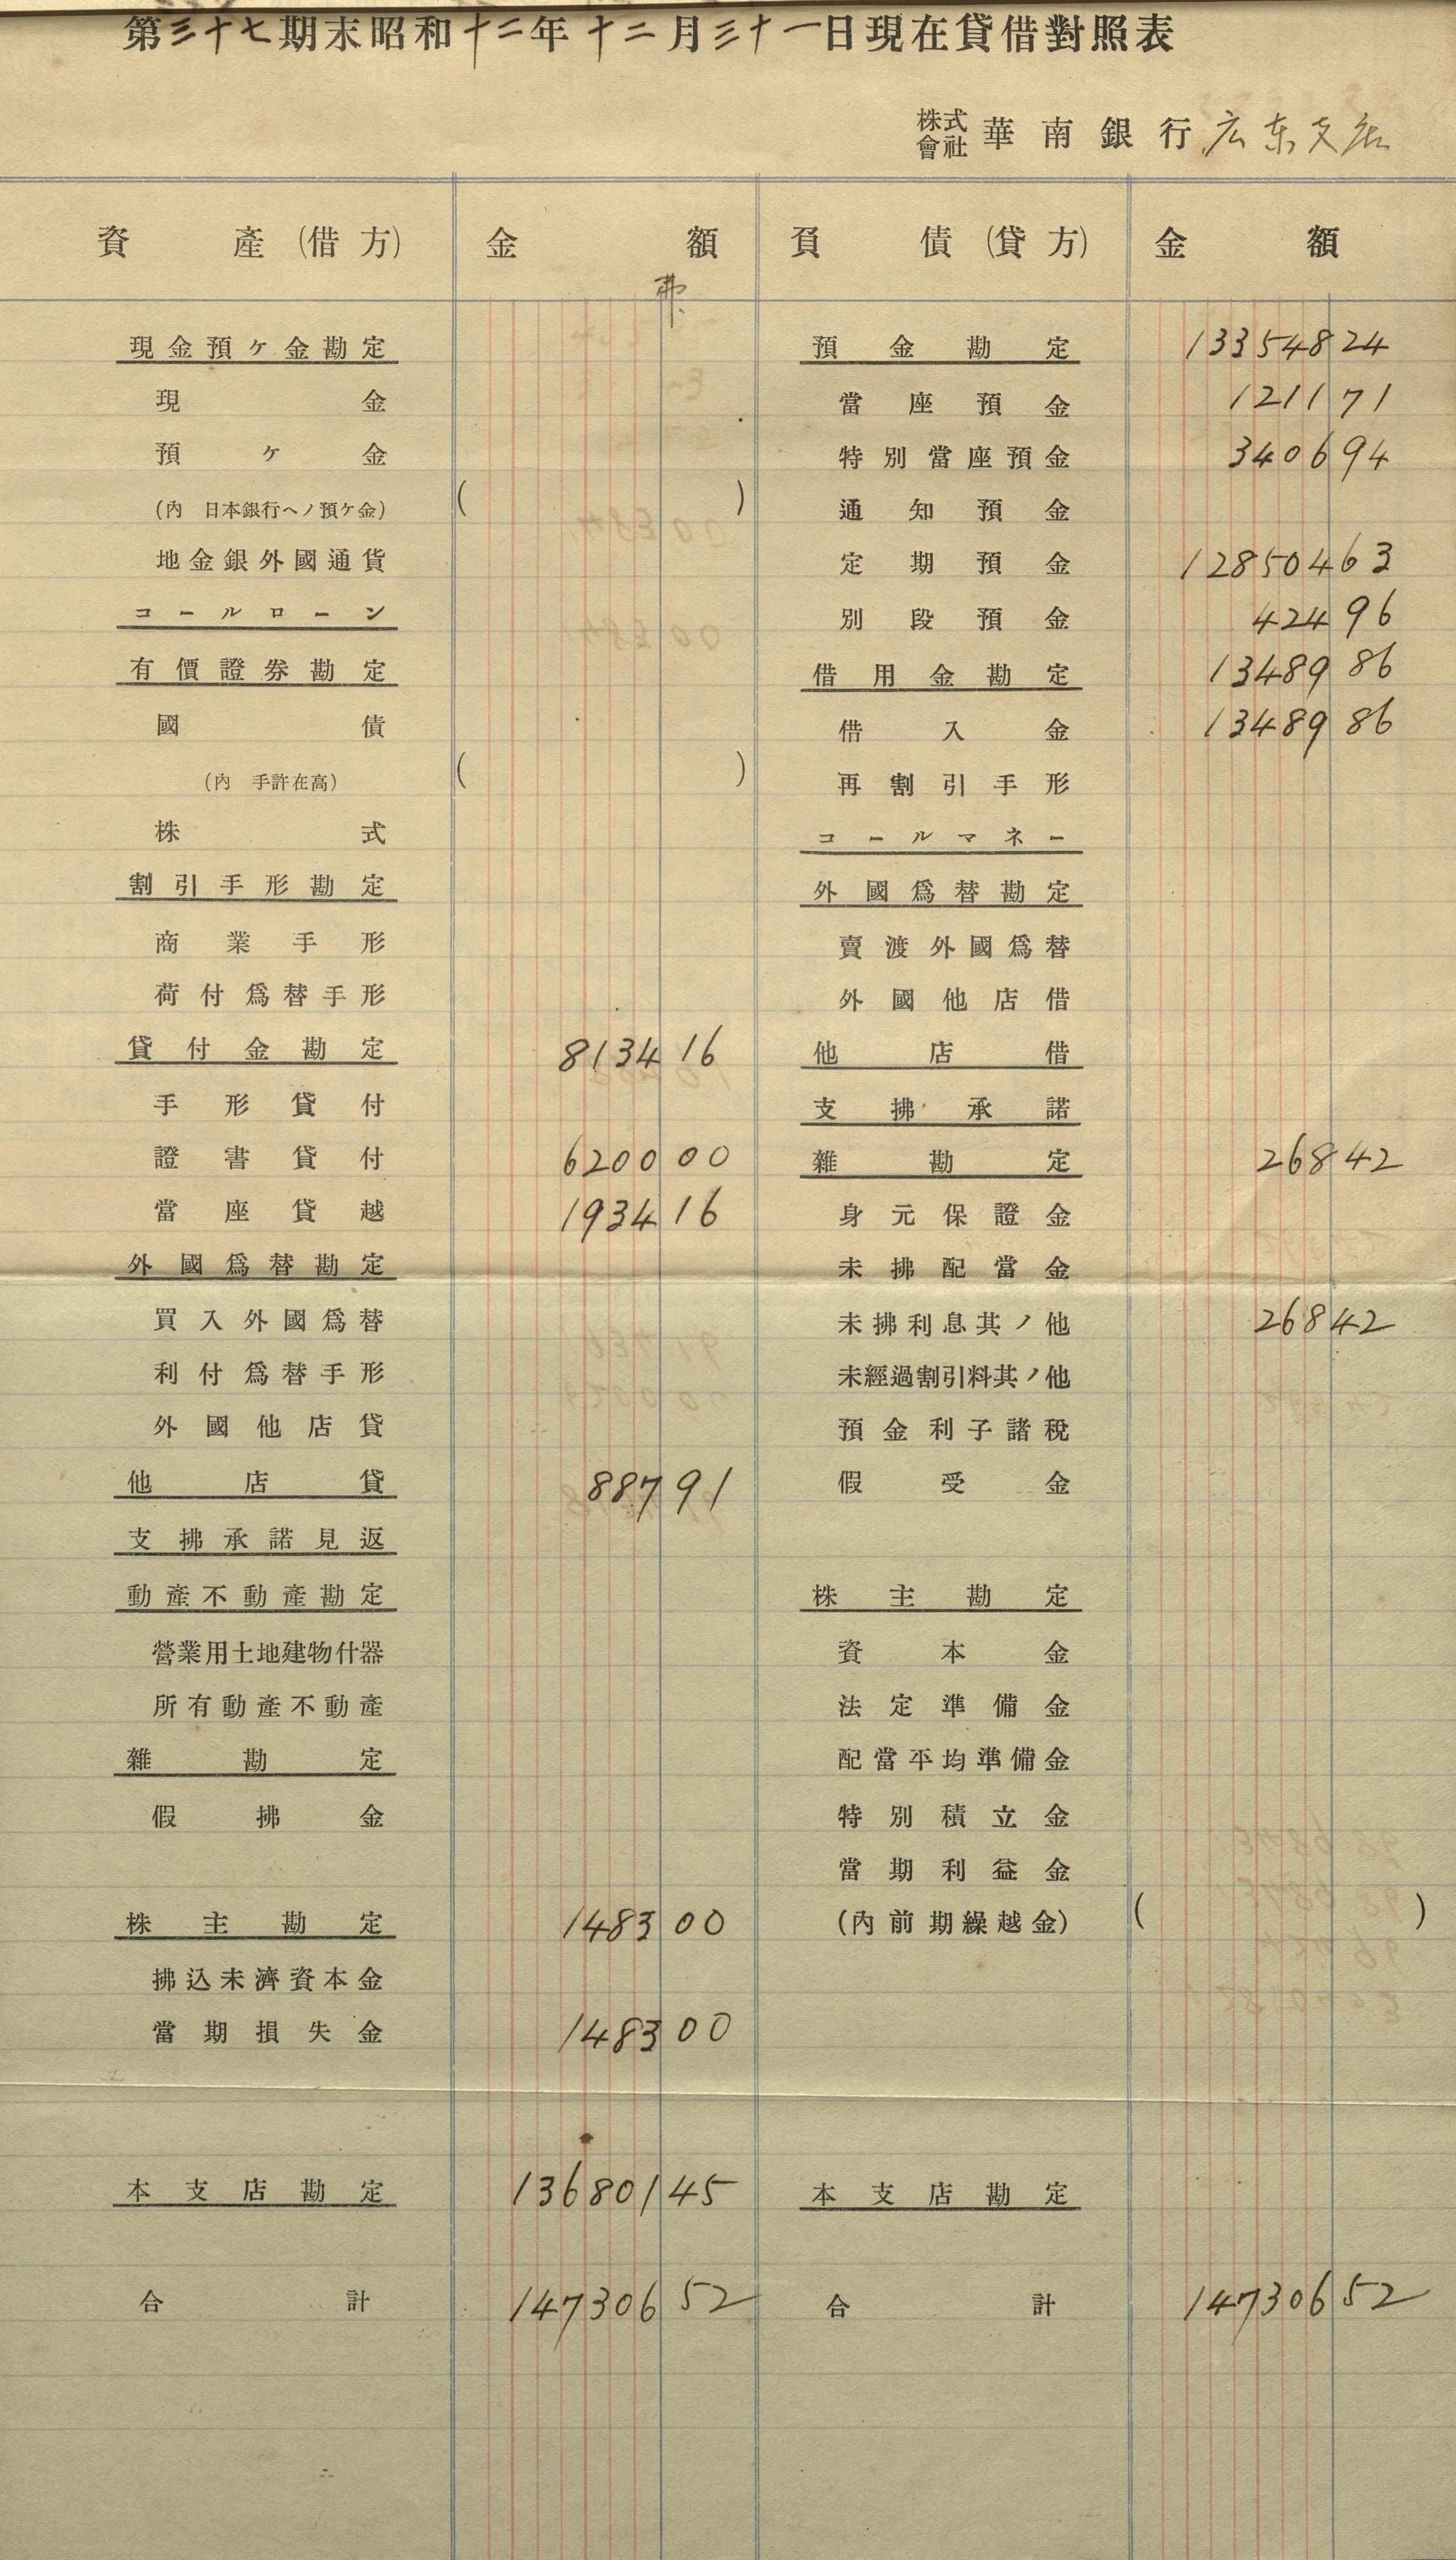 第三十七期末昭和十二年十二月三十一日現在貸借對照表
株式會社 華南銀行 広东支店
資產(借方) 金額 負債(貸方) 金額
弗
現金預ヶ金勘定 預金勘定 133548 24
現金 當座預金 1211 71
預ヶ金 特別當座預金 3406 94
(內 日本銀行ヘノ預ヶ金) ( ) 通知預金
地金銀外國通貨 定期預金 128504 63
コールローン 別段預金 424 96
有價證券勘定 借用金勘定 13489 86
國債 借入金 13489 86
(內 手許在高) ( ) 再割引手形
株式 コールマネー
割引手形勘定 外國爲替勘定
商業手形 賣渡外國爲替
荷付爲替手形 外國他店借
貸付金勘定 8134 16 他店借
手形貸付 支拂承諾
證書貸付 6200 00 雜勘定 268 42
當座貸越 1934 16 身元保證金
外國爲替勘定 未拂配當金
買入外國爲替 未拂利息其ノ他 268 42
利付爲替手形 未經過割引料其ノ他
外國他店貸 預金利子諸稅
他店貸 887 91 假受金
支拂承諾見返
動產不動產勘定 株主勘定
營業用土地建物什器 資本金
所有動產不動產 法定準備金
雜勘定 配當平均準備金
假拂金 特別積立金
當期利益金
株主勘定 1483 00 (內前期繰越金) ( )
拂込未濟資本金
當期損失金 1483 00
本支店勘定 136801 45 本支店勘定
合計 147306 52 合計 147306 52